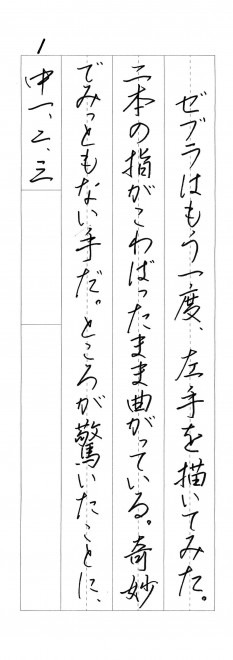 ゼブラはもう一度、左手を描いてみた。
二本の指がこわばったまま曲がっている。奇妙
でみっともない手だ。ところが驚いたことに、
1
中一、二、三